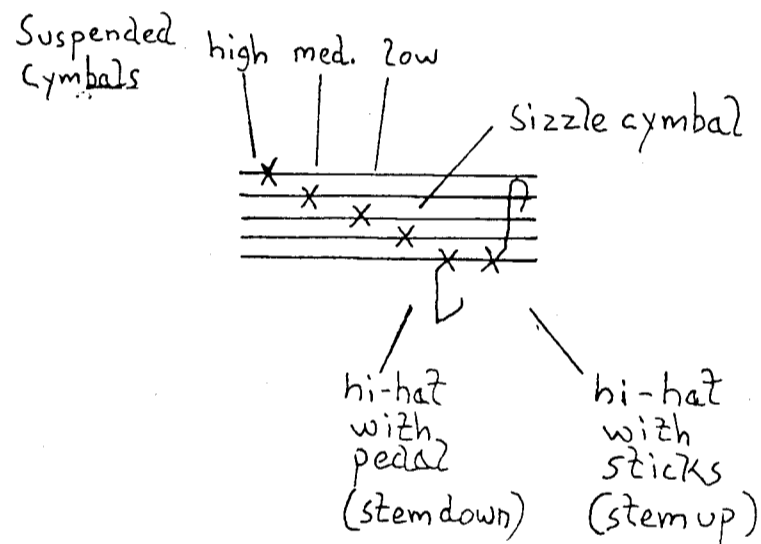 Suspended
cymbals
high med. low
sizzle cymbal
hi-hat
with
pedal
(stem down)
hi-hat
with
sticks
(stem up)